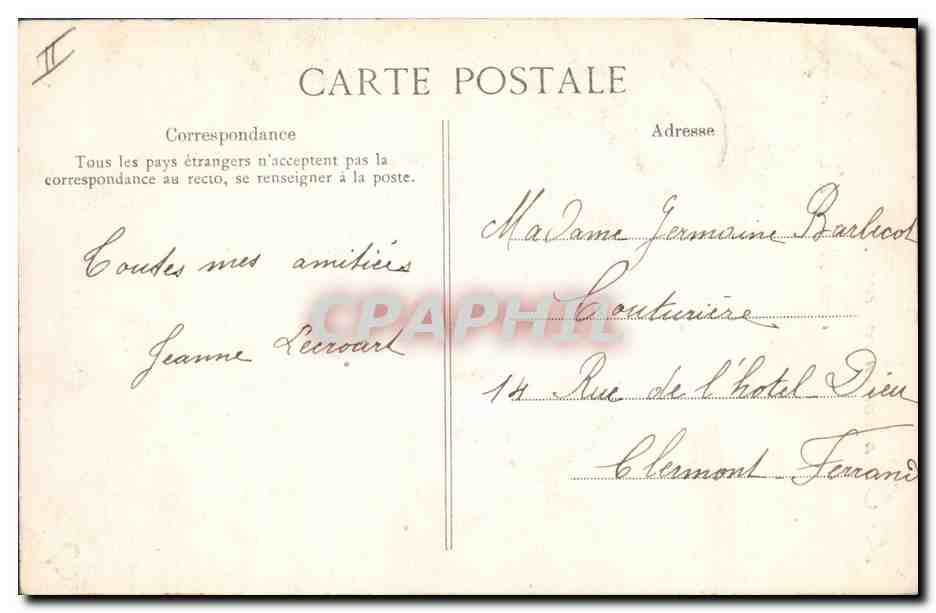 II
CARTE POSTALE
Correspondance
Tous les pays étrangers n'acceptent pas la
correspondance au recto, se renseigner à la poste.
Toutes mes amitiés
Jeanne Lecroart
Adresse
Madame Germaine Barlicot
Couturière
14 Rue de l'hotel-Dieu
Clermont-Ferrand
CPAPHIL